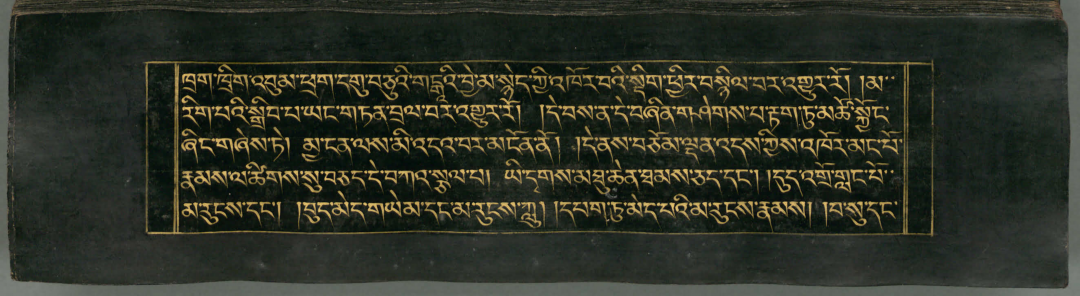 ཁྲག་ཁྲིག་འབུམ་ཕྲག་དགུ་བཅུའི་གངྒཱའི་བྱེ་མ་སྙེད་ཀྱི་འཁོར་བའི་སྡིག་ཕྱིར་བསྙིལ་བར་འགྱུར་རོ། །མ་
རིག་པའི་སྒྲིབ་པ་ཡང་གཏན་བྲལ་བར་འགྱུར་རོ། །དེ་བས་ན་དེ་བཞིན་གཤེགས་པ་རྟག་ཏུ་མཚོ་སྐྱོང་
ཞིང་གཞེས་ཏེ། མྱ་ངན་ལས་མི་འདའ་བར་མངོན་ནོ། །དེ་ནས་བཅོམ་ལྡན་འདས་ཀྱིས་འཁོར་མང་པོ་
རྣམས་ལ་ཚིགས་སུ་བཅད་དེ་བཀའ་སྩལ་པ། ཡི་དྭགས་མཐུ་ཆེན་ཐམས་ཅད་དང་། །དུད་འགྲོ་གླང་པོ་
མ་རུངས་དང་། །བུད་མེད་གཡེམ་དང་མ་རུངས་ཀླུ། །དཔག་ཏུ་མེད་པའི་མ་རུངས་རྣམས། །བ་སུ་དང་